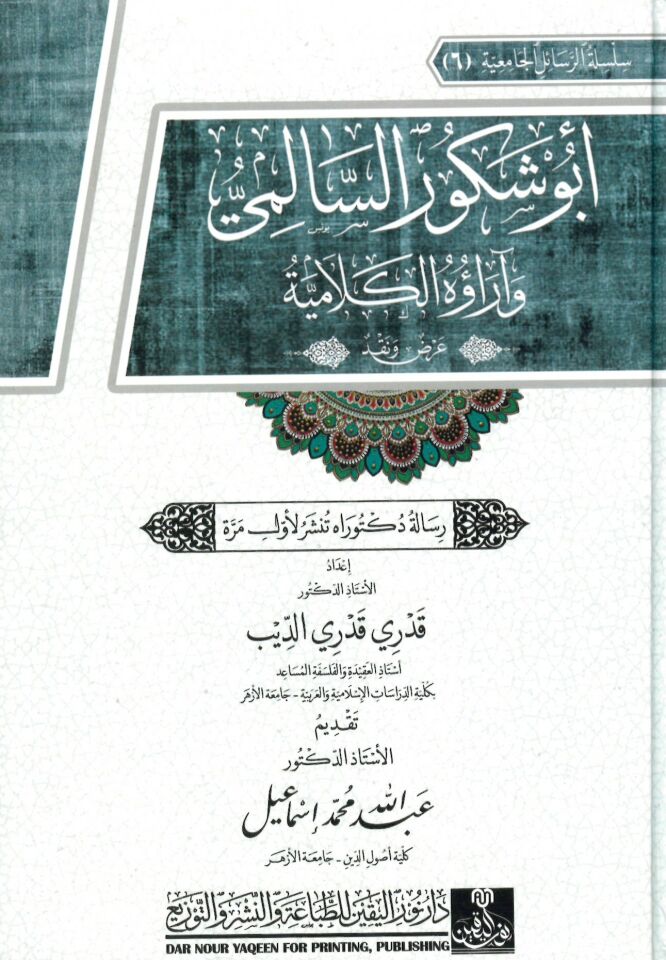 سِلْسِلَةُ الرَّسَائِلِ الجَامِعِيَّةِ (٦)
أَبُو شَكُور السَّالِمِيُّ
يونس
وَآرَاؤُهُ الكَلَامِيَّةُ
عَرْضٌ وَنَقْدٌ
رِسَالَةُ دُكْتُورَاه تُنْشَرُ لأَوَّلِ مَرَّة
إِعْدَادُ
الأُسْتَاذِ الدِّكْتُور
قَدْرِي قَدْرِي الدِّيْب
أُسْتَاذِ العَقِيْدَةِ وَالفَلْسَفَةِ المُسَاعِد
بِكُلِّيَّةِ الدِّرَاسَاتِ الإِسْلَامِيَّةِ وَالعَرَبِيَّةِ - جَامِعَة الأَزْهَر
تَقْدِيمُ
الأُسْتَاذ الدِّكْتُور
عَبْد الله مُحَمَّد إِسْمَاعِيل
كُلِّيَّة أُصُولِ الدِّينِ - جَامِعَة الأَزْهَر
دَار نُورِ اليَقِين لِلطِّبَاعَةِ وَالنَّشْرِ وَالتَّوْزِيع
نور اليقين
DAR NOUR YAQEEN FOR PRINTING, PUBLISHING